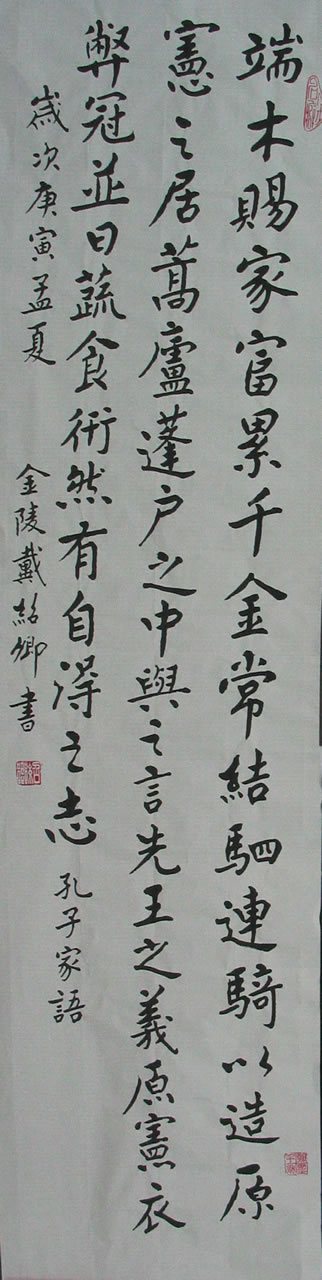 端木賜家富累千金常結駟連騎以造原
憲之居蒿廬蓬戶之中與之言先王之義原憲衣
弊冠並日蔬食衎然有自得之志 孔子家語
歲次庚寅孟夏 金陵戴紹卿書